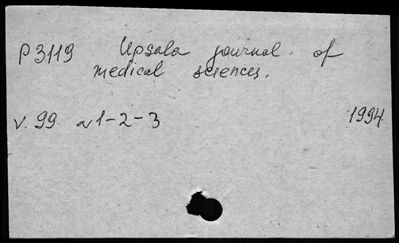 P3119 Upsala journal of
medical sciences.
v. 99 N1-2-3 1994